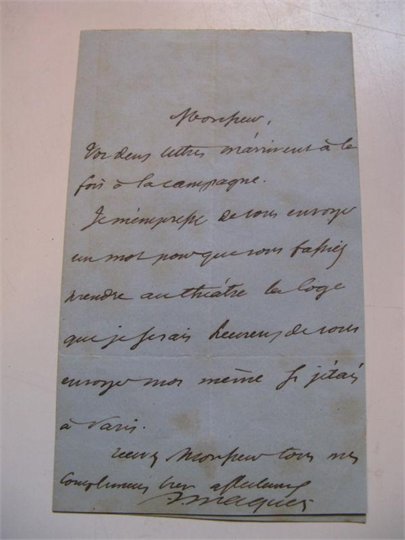 Monsieur,
Vos deux lettres m'arrivent à la
fois à la campagne.
Je m'empresse de vous envoyer
un mot pour que vous fassiez
prendre au théâtre la loge
que je serais heureux de vous
envoyer moi même si j'étais
à Paris.
recevez Monsieur tous mes
compliments bien affectueux